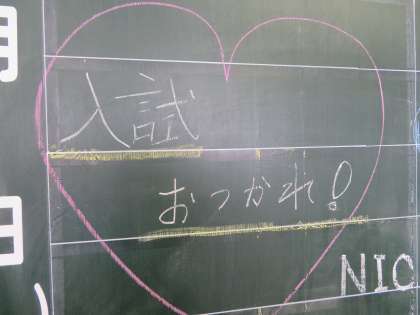 入試
おつかれ!
NIC